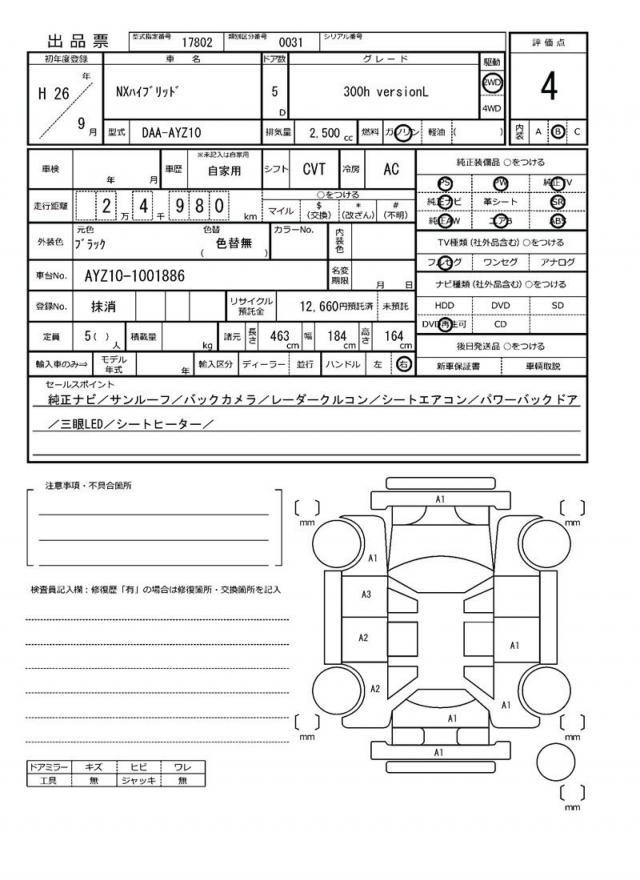 出品票 型式指定番号 17802 類別区分番号 0031 シリアル番号
初年度登録 車名 ドア数 グレード 駆動 評価点
H 26 年 9 月 NXﾊｲﾌﾞﾘｯﾄﾞ 5 D 300h versionL 2WD 4WD 4
型式 DAA-AYZ10 排気量 2,500 cc 燃料 ガソリン 軽油 ( ) 内装 A B C
車検 年 月 車歴 ※未記入は自家用 自家用 シフト CVT 冷房 AC
純正装備品 ○をつける
PS PW 純正TV
純正ナビ 革シート SR
純正AW エアB ABS
走行距離 2 万 4 千 9 8 0 km
○をつける
マイル $ (交換) * (改ざん) # (不明)
外装色 元色 ﾌﾞﾗｯｸ 色替 ( 色替無 ) カラーNo. 内装色
TV種類 (社外品含む) ○をつける
フルセグ ワンセグ アナログ
車台No. AYZ10-1001886 名変期限 月 日
ナビ種類 (社外品含む) ○をつける
HDD DVD SD
DVD再生可 CD
登録No. 抹消 リサイクル預託金 12,660円預託済 未預託
定員 5 ( ) 人 積載量 kg 諸元 長さ 463 cm 幅 184 cm 高さ 164 cm
後日発送品 ○をつける
新車保証書 車輌取説
輸入車のみ⇒ モデル年式 年 輸入区分 ディーラー 並行 ハンドル 左 右
セールスポイント
純正ナビ／サンルーフ／バックカメラ／レーダークルコン／シートエアコン／パワーバックドア
／三眼LED／シートヒーター／
注意事項・不具合箇所
検査員記入欄：修復歴「有」の場合は修復箇所・交換箇所を記入
A1
mm mm
A1
A3
A2 A1
A2 A1
A1
mm mm
A1
mm
ドアミラー キズ ヒビ ワレ
工具 無 ジャッキ 無